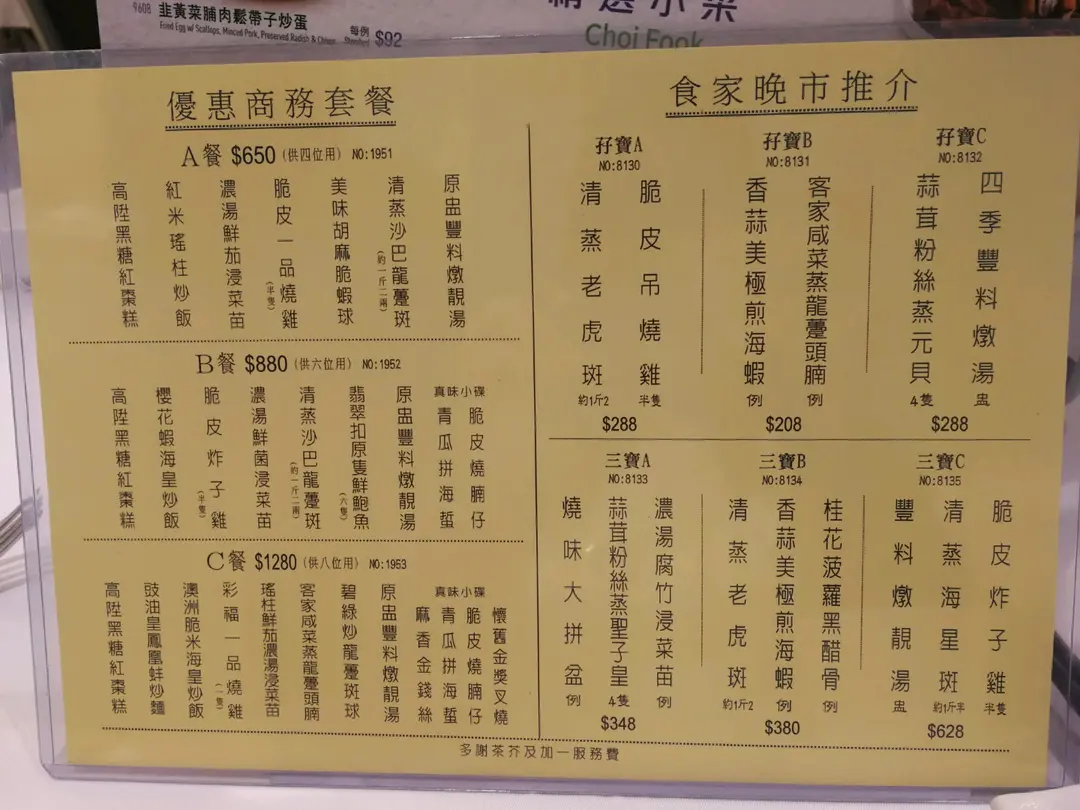 9608 韭黃菜脯肉鬆帶子炒蛋
Fried Egg w/ Scallops, Minced Pork, Preserved Radish & Chives
每例
Standard $92
精選小菜
Choi Fook
優惠商務套餐
A餐 $650 (供四位用) NO:1951
原盅豐料燉靚湯
清蒸沙巴龍躉斑(約一斤二兩)
美味胡麻脆蝦球
脆皮一品燒雞(半隻)
濃湯鮮茄浸菜苗
紅米瑤柱炒飯
高陞黑糖紅棗糕
B餐 $880 (供六位用) NO:1952
真味小碟
脆皮燒腩仔
青瓜拼海蜇
原盅豐料燉靚湯
翡翠扣原隻鮮鮑魚(六隻)
清蒸沙巴龍躉斑(約一斤二兩)
濃湯鮮菌浸菜苗
脆皮炸子雞(半隻)
櫻花蝦海皇炒飯
高陞黑糖紅棗糕
C餐 $1280 (供八位用) NO:1953
真味小碟
懷舊金獎叉燒
脆皮燒腩仔
青瓜拼海蜇
麻香金錢絲
原盅豐料燉靚湯
碧綠炒龍躉斑球
客家咸菜蒸龍躉頭腩
瑤柱鮮茄濃湯浸菜苗
彩福一品燒雞(一隻)
澳洲脆米海皇炒飯
豉油皇鳳凰蚌炒麵
高陞黑糖紅棗糕
食家晚市推介
孖寶A
NO:8130
脆皮吊燒雞 半隻
清蒸老虎斑 約1斤2
$288
孖寶B
NO:8131
客家咸菜蒸龍躉頭腩 例
香蒜美極煎海蝦 例
$208
孖寶C
NO:8132
四季豐料燉湯 盅
蒜茸粉絲蒸元貝 4隻
$288
三寶A
NO:8133
濃湯腐竹浸菜苗 例
蒜茸粉絲蒸聖子皇 4隻
燒味大拼盆 例
$348
三寶B
NO:8134
桂花菠蘿黑醋骨 例
香蒜美極煎海蝦 例
清蒸老虎斑 約1斤2
$380
三寶C
NO:8135
脆皮炸子雞 半隻
清蒸海星斑 約1斤半
豐料燉靚湯 盅
$628
多謝茶芥及加一服務費